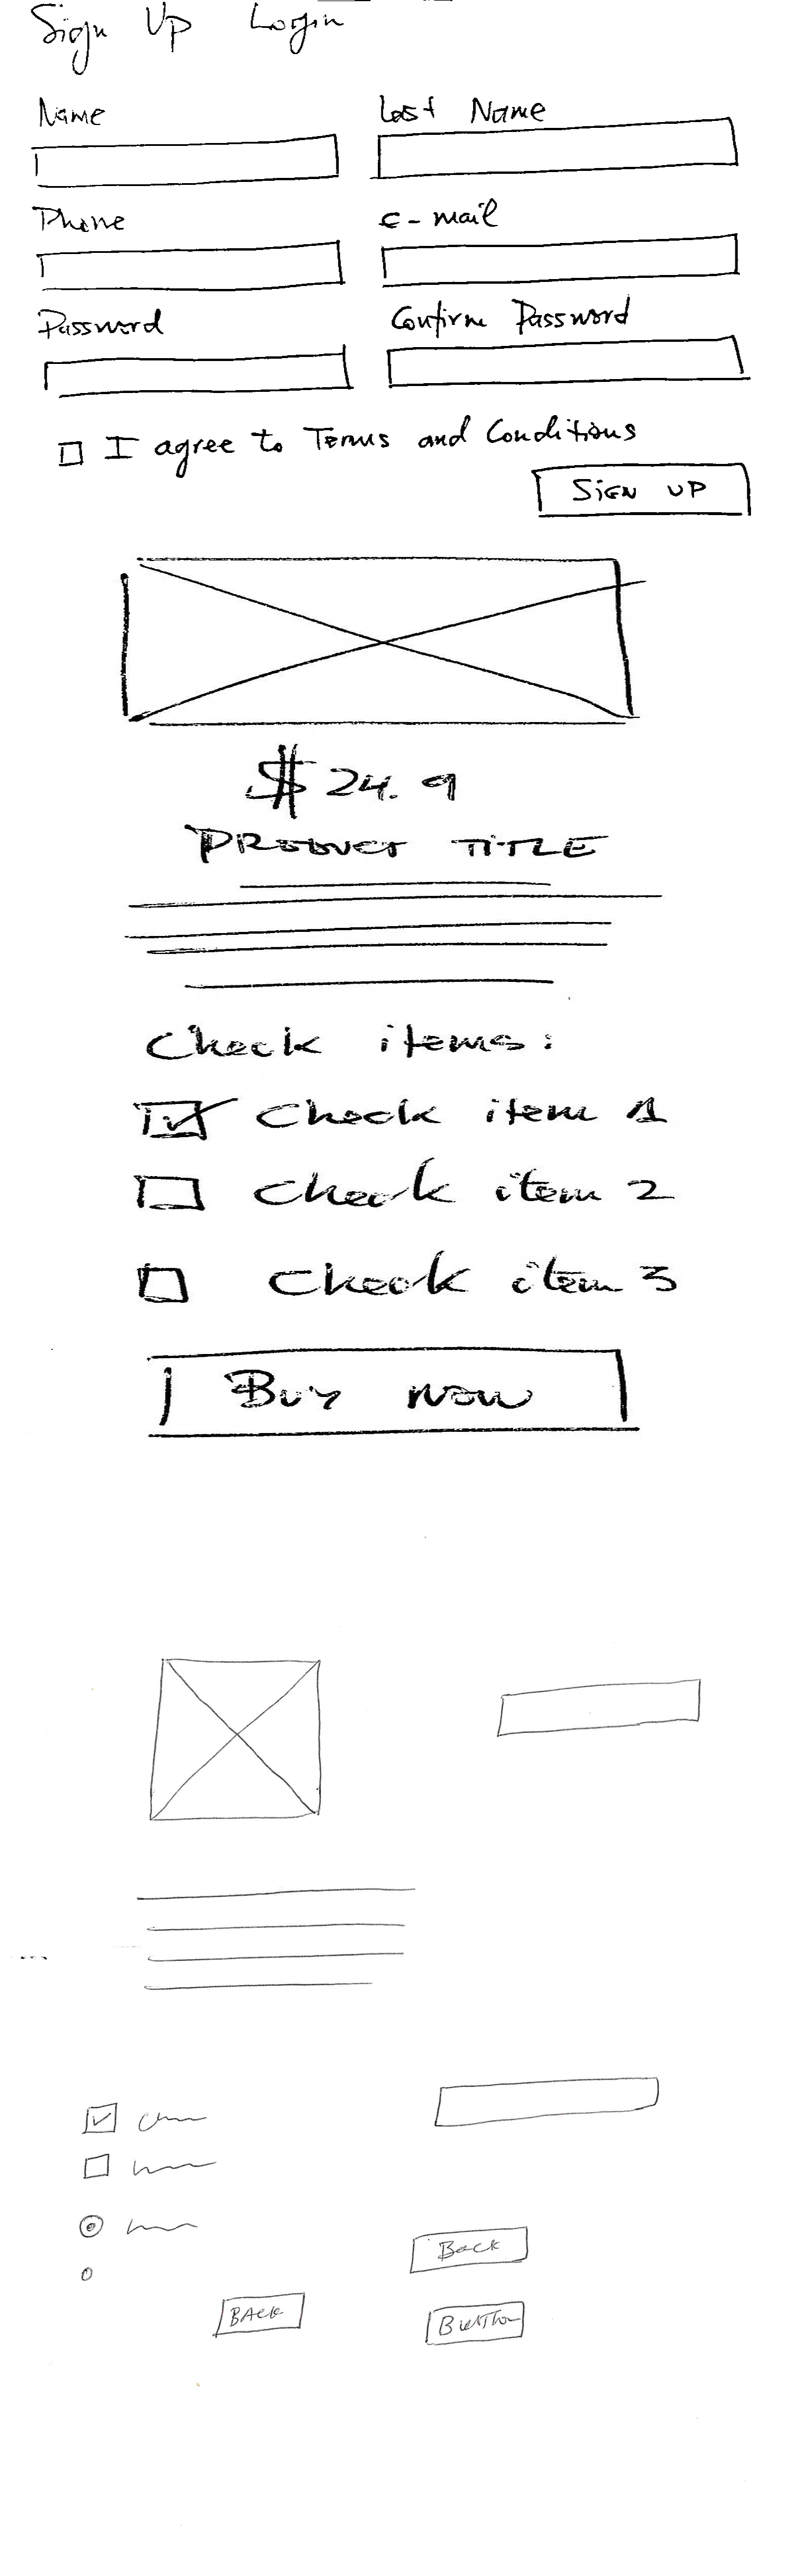 Sign Up Login
Name Last Name
Phone e-mail
Password Confirm Password
I agree to Terms and Conditions
SIGN UP
$ 24.9
PRODUCT TITLE
Check items:
Check item 1
Check item 2
Check item 3
Buy now
Back
BACK
Button